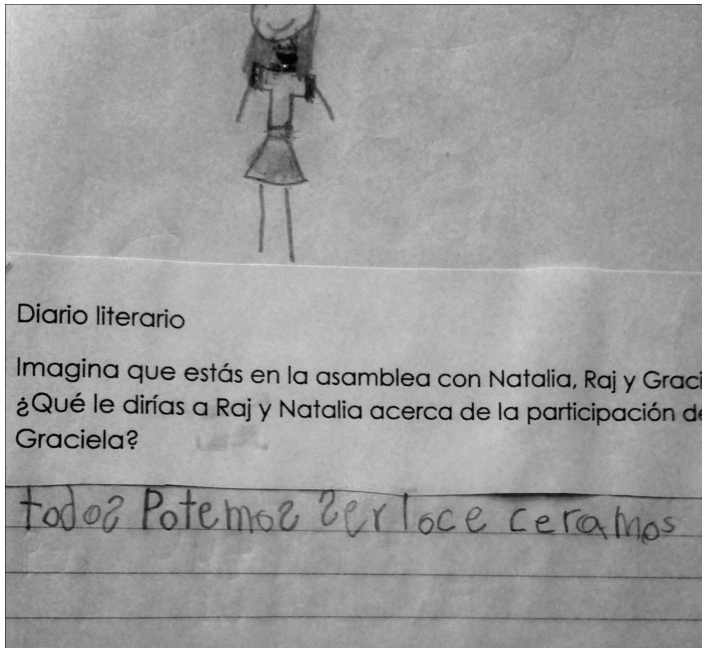 Diario literario
Imagina que estás en la asamblea con Natalia, Raj y Graci
¿Qué le dirías a Raj y Natalia acerca de la participación de
Graciela?
todos Potemos Ser loce ceramos